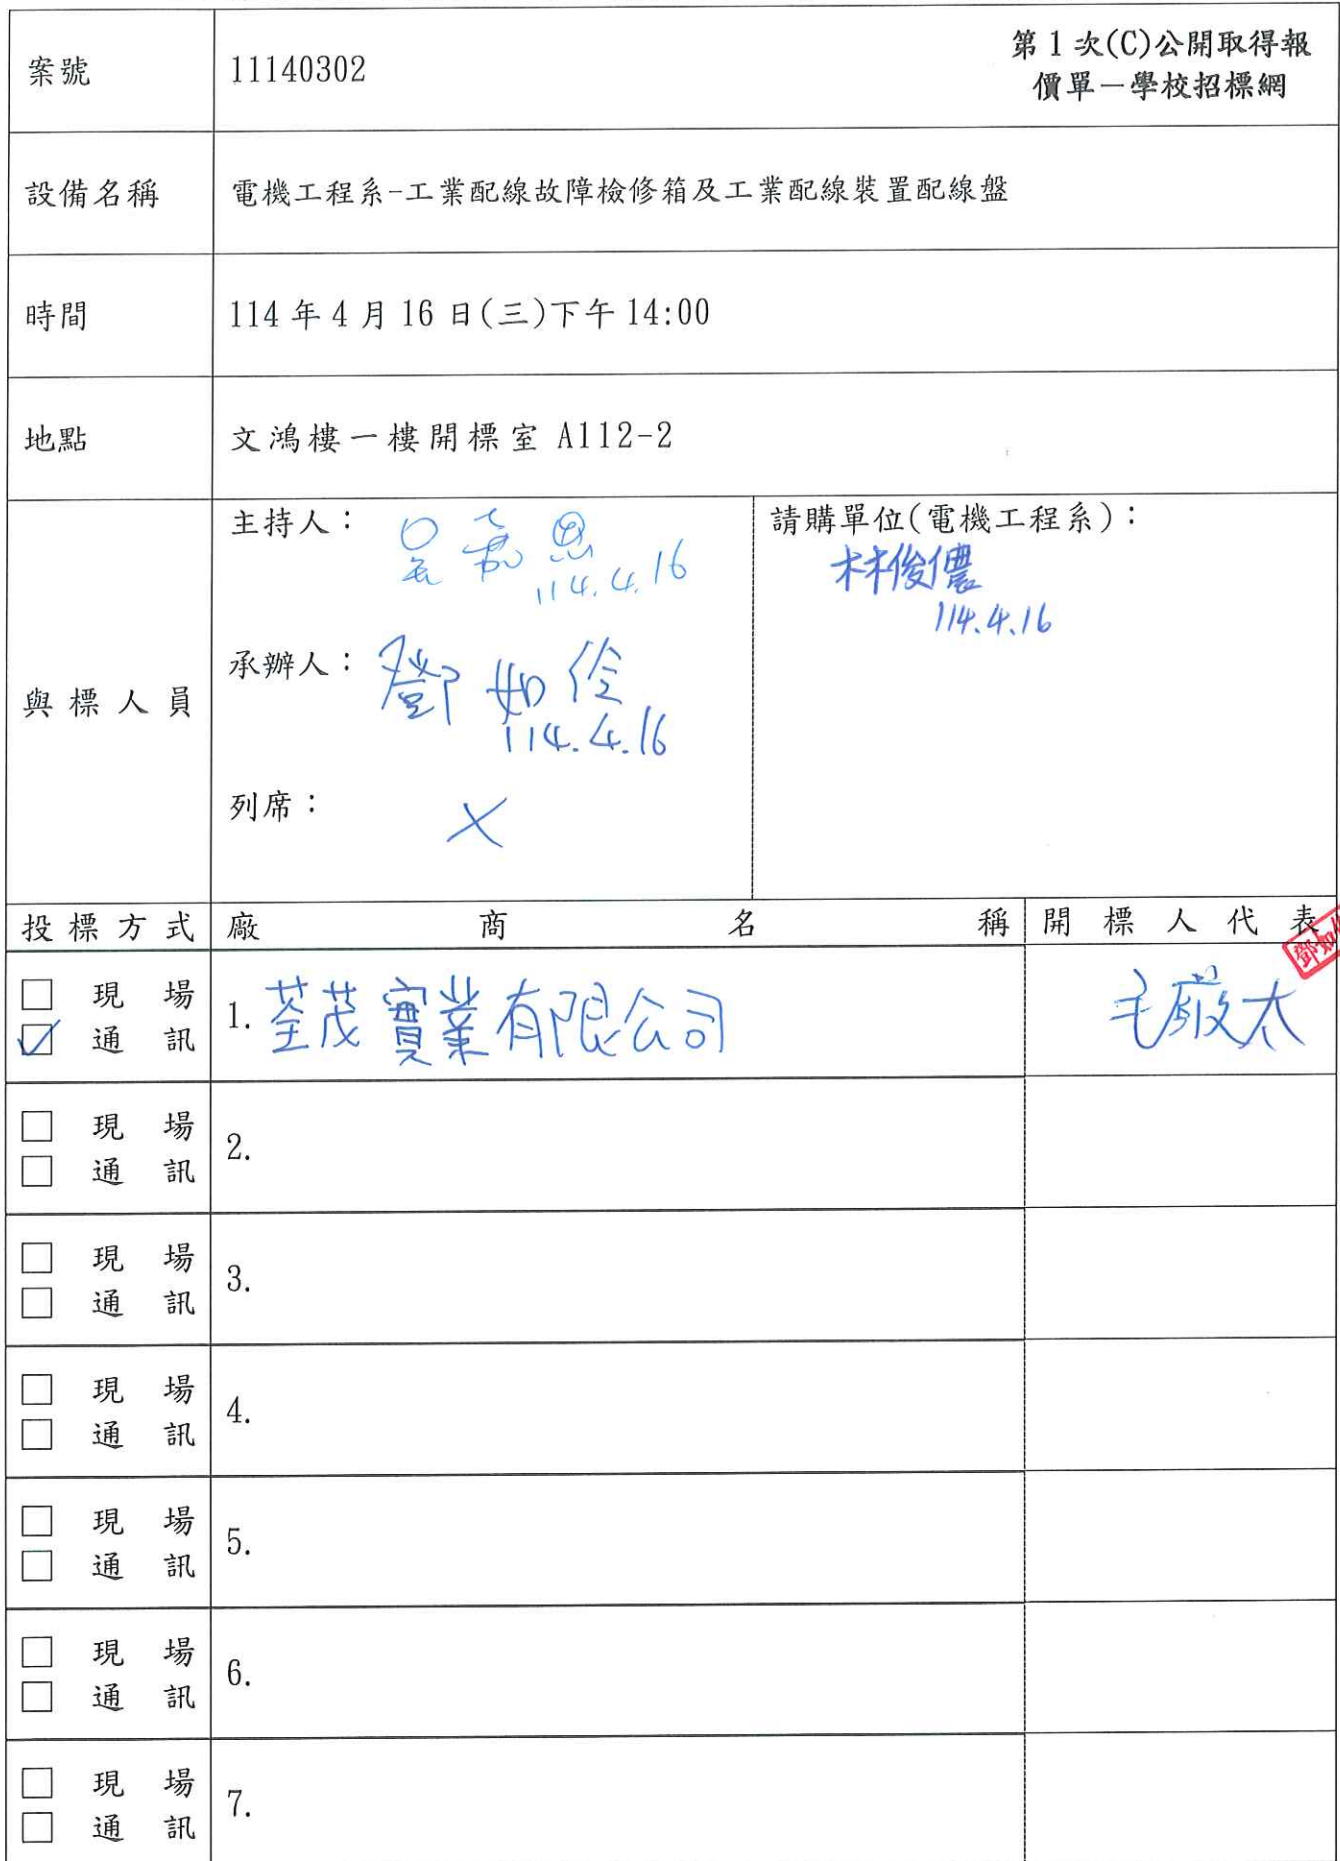 案號
11140302
第1次(C)公開取得報
價單－學校招標網
設備名稱
電機工程系-工業配線故障檢修箱及工業配線裝置配線盤
時間
114年4月16日(三)下午14:00
地點
文鴻樓一樓開標室 A112-2
與標人員
主持人：
吳嘉恩
114.4.16
承辦人：
鄧如伶
114.4.16
列席：
X
請購單位(電機工程系)：
林俊儂
114.4.16
投標方式 廠商名稱 開標人代表
□ 現場
☑ 通訊
1. 荃茂實業有限公司
毛啟太
□ 現場
□ 通訊
2.
□ 現場
□ 通訊
3.
□ 現場
□ 通訊
4.
□ 現場
□ 通訊
5.
□ 現場
□ 通訊
6.
□ 現場
□ 通訊
7.